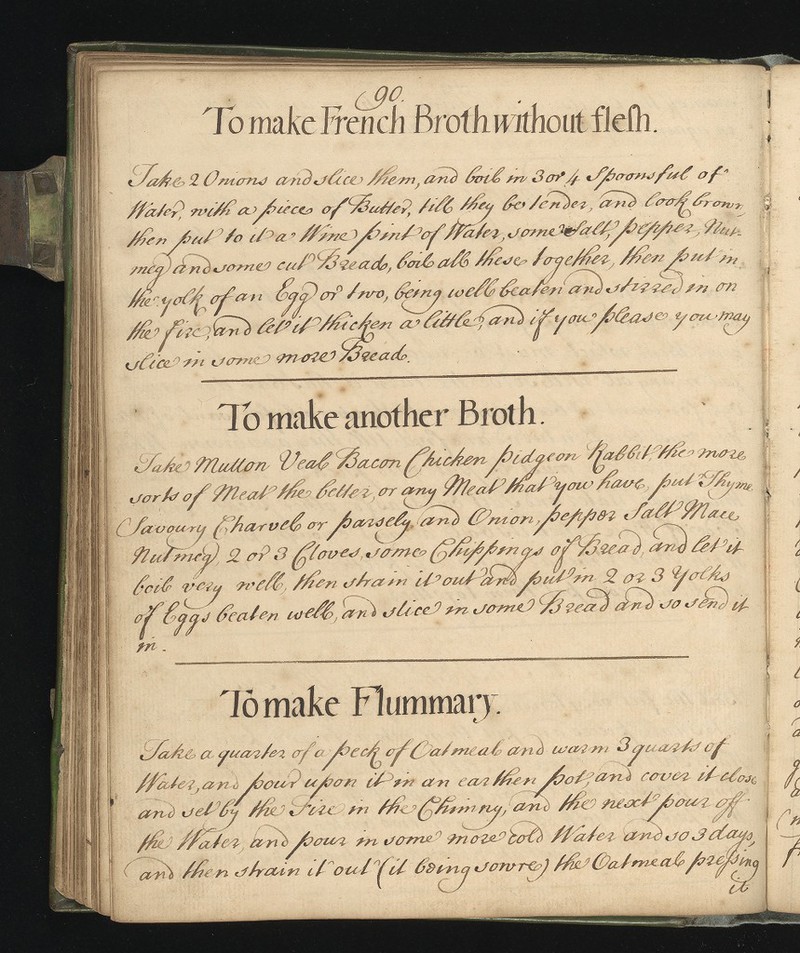 90.
To make French Broth without flesh.
Take 2 Onions and slice them, and boil in 3 or 4 Spoonsful of
Water, with a piece of Butter, till they be tender, and look brown,
then put to it a Wine pint of Water, some Salt, pepper, Nut-
meg and some cut Bread, boil all these together, then put in
the yolk of an Egg or two, being well beaten and stirred in on
the fire, and let it thicken a little, and if you please you may
slice in some more Bread.
To make another Broth.
Take Mutton Veal Bacon Chicken pidgeon Rabbit, the more
sorts of Meat the better, or any Meat that you have, put Thyme
Savoury Charvel or parsely, and Onion, pepper Salt Mace
Nutmeg, 2 or 3 Cloves, some Chippings of Bread, and let it
boil very well, then strain it out and put in 2 or 3 Yolks
of Eggs beaten well, and slice in some Bread and so send it
in.
To make Flummary.
Take a quarter of a peck of Oatmeal and warm 3 quarts of
Water, and pour upon it in an earthen pot and cover it close
and set by the Fire in the Chimny, and the next pour off
the Water, and pour in some more cold Water and so 3 days,
and then strain it out (it being sowre) the Oatmeal pressing
it